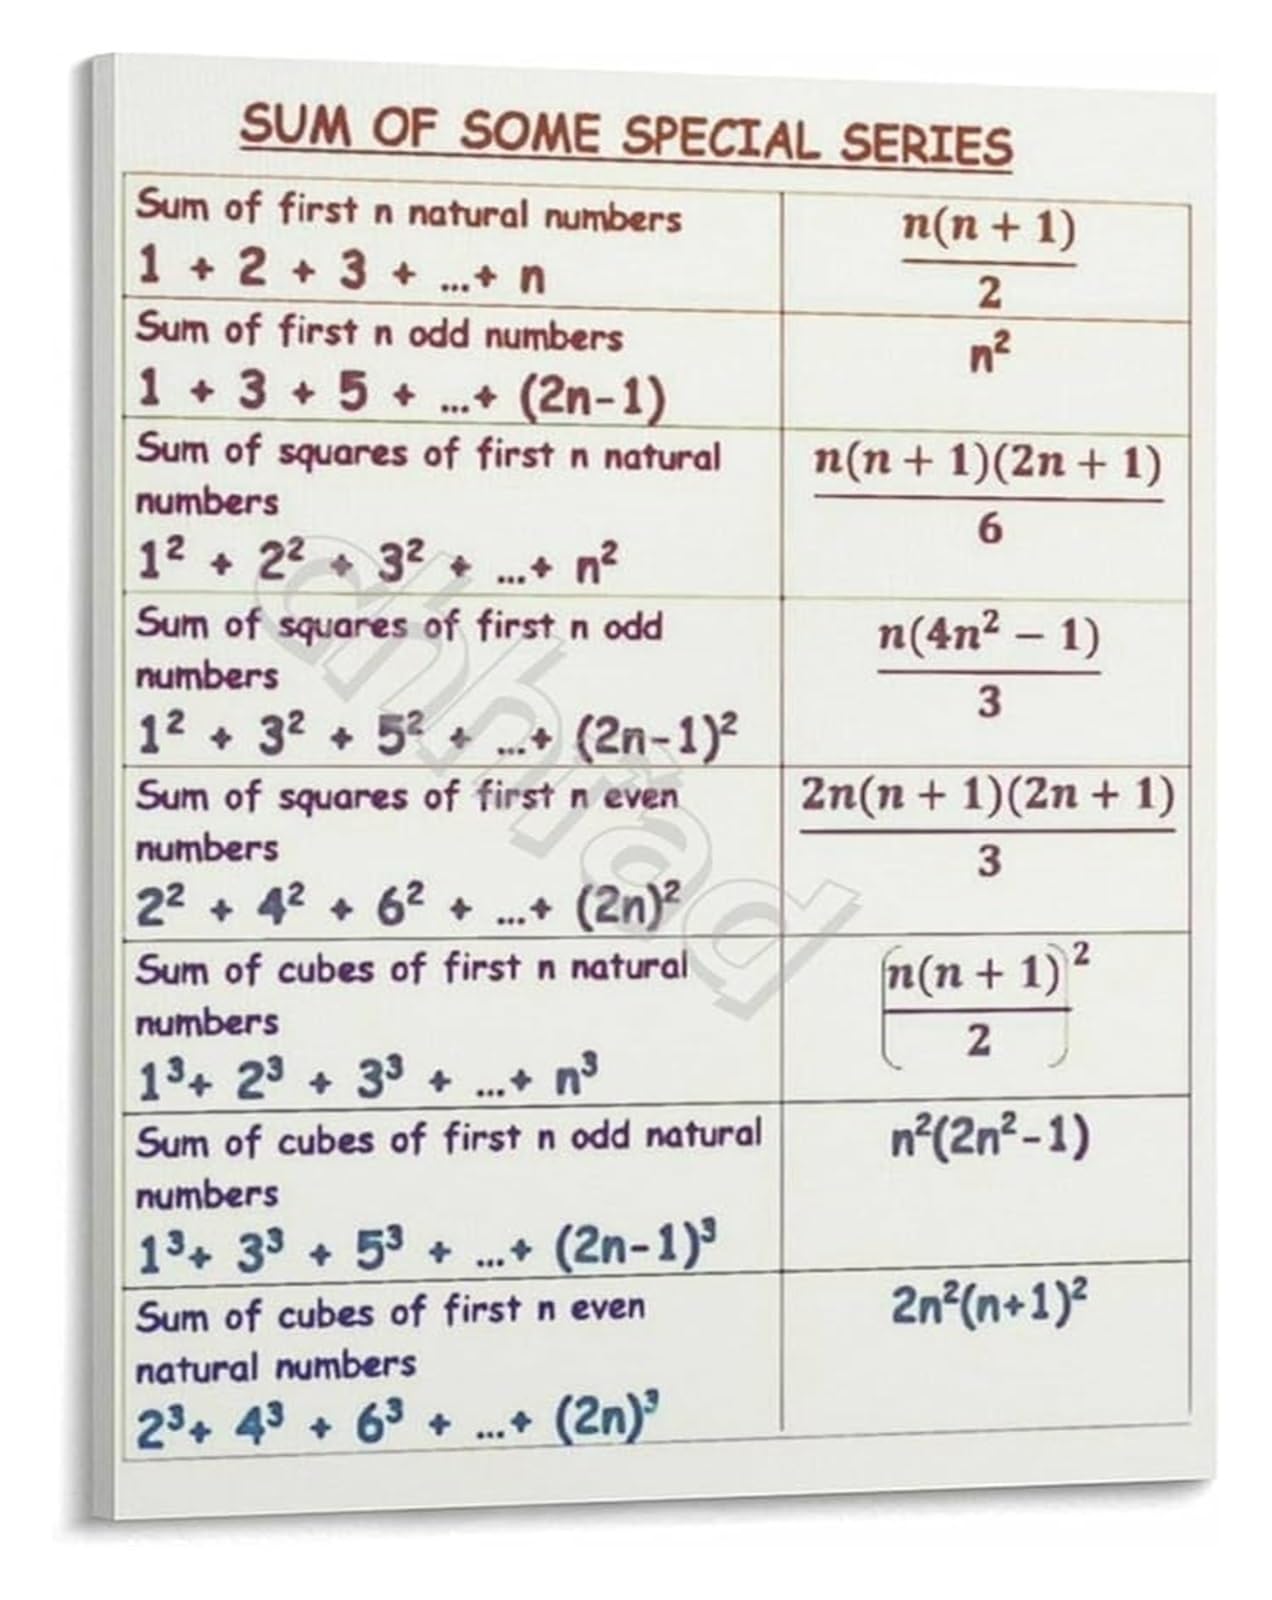 SUM OF SOME SPECIAL SERIES
Sum of first n natural numbers
1 + 2 + 3 + ...+ n
n(n + 1)
2
Sum of first n odd numbers
1 + 3 + 5 + ...+ (2n-1)
n²
Sum of squares of first n natural
numbers
1² + 2² + 3² + ...+ n²
n(n + 1)(2n + 1)
6
Sum of squares of first n odd
numbers
1² + 3² + 5² + ...+ (2n-1)²
n(4n² − 1)
3
Sum of squares of first n even
numbers
2² + 4² + 6² + ...+ (2n)²
2n(n + 1)(2n + 1)
3
Sum of cubes of first n natural
numbers
1³+ 2³ + 3³ + ...+ n³
(n(n + 1))²
2
Sum of cubes of first n odd natural
numbers
1³+ 3³ + 5³ + ...+ (2n-1)³
n²(2n²-1)
Sum of cubes of first n even
natural numbers
2³+ 4³ + 6³ + ...+ (2n)³
2n²(n+1)²